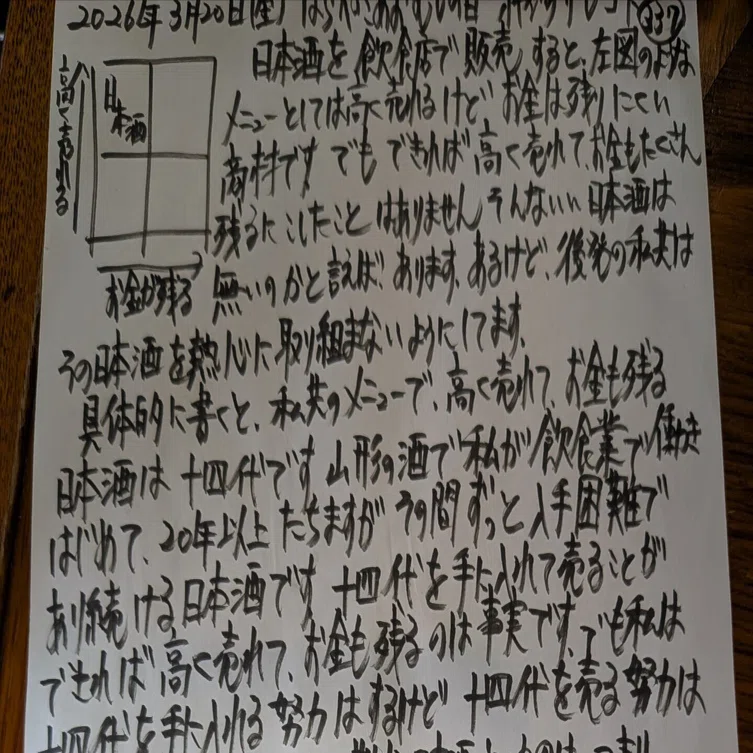 2026年3月20日(金)
337
日本酒を飲食店で販売すると、左図のような
メニューとしては高く売れるけどお金は残りにくい
商材です でも できれば高く売れて、お金もたくさん
残るにこしたことはありません そんないい日本酒は
無いのかと言えば、あります、あるけど、後発の私共は
その日本酒を熱心に取り組まないようにしてます、
具体的に書くと、私共のメニューで、高く売れて、お金も残る
日本酒は 十四代です 山形の酒で私が飲食業で働き
はじめて、20年以上たちますが その間ずっと入手困難で
あり続ける日本酒です 十四代を手に入れて売ることが
できれば高く売れて、お金も残るのは事実です、でも私は
十四代を手に入れる努力はするけど 十四代を売る努力は
高く売れる
日本酒
お金が残る